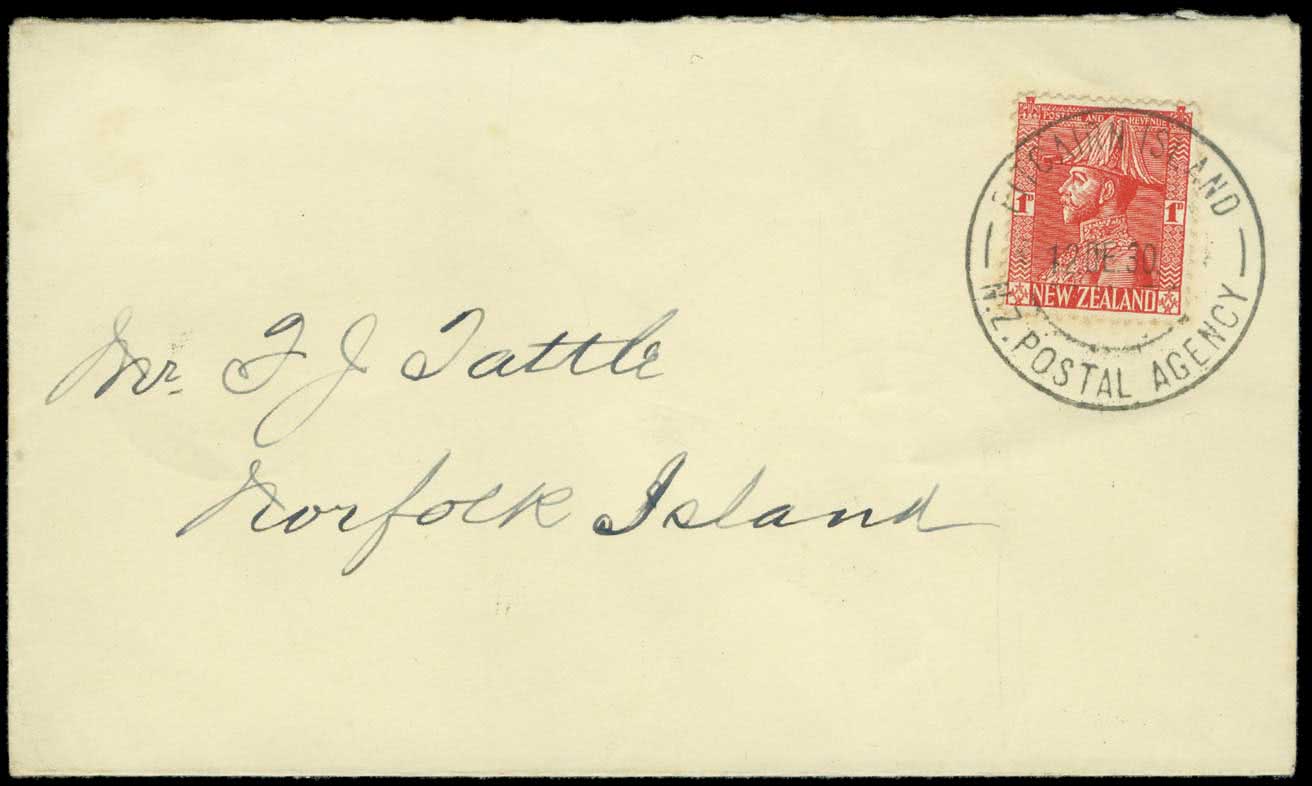 POSTAGE AND REVENUE
1D 1D
NEW ZEALAND
PITCAIRN ISLAND
12 DE 30
N.Z. POSTAL AGENCY
Mr. F J Tattle
Norfolk Island